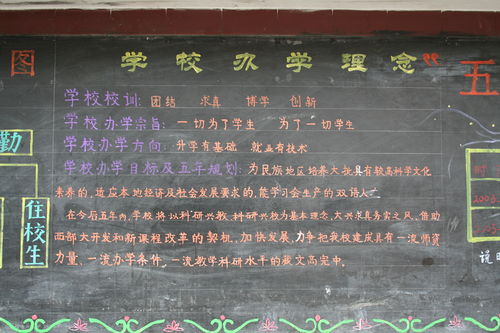 学校办学理念
图
五
学校校训: 团结 求真 博学 创新
学校办学宗旨: 一切为了学生 为了一切学生
学校办学方向: 升学有基础 就业有技术
学校办学目标及五年规划: 为民族地区培养大批具有较高科学文化
素养的, 适应本地经济及社会发展要求的, 能学习会生产的双语人
在今后五年内, 学校将以科研兴教、科研兴校为基本理念, 大兴求真务实之风、借助
西部大开发和新课程改革的契机, 加快发展, 力争把我校建成具有一流师资
力量, 一流办学条件, 一流教学科研水平的藏文高完中。
勤
住校生
2006
说明